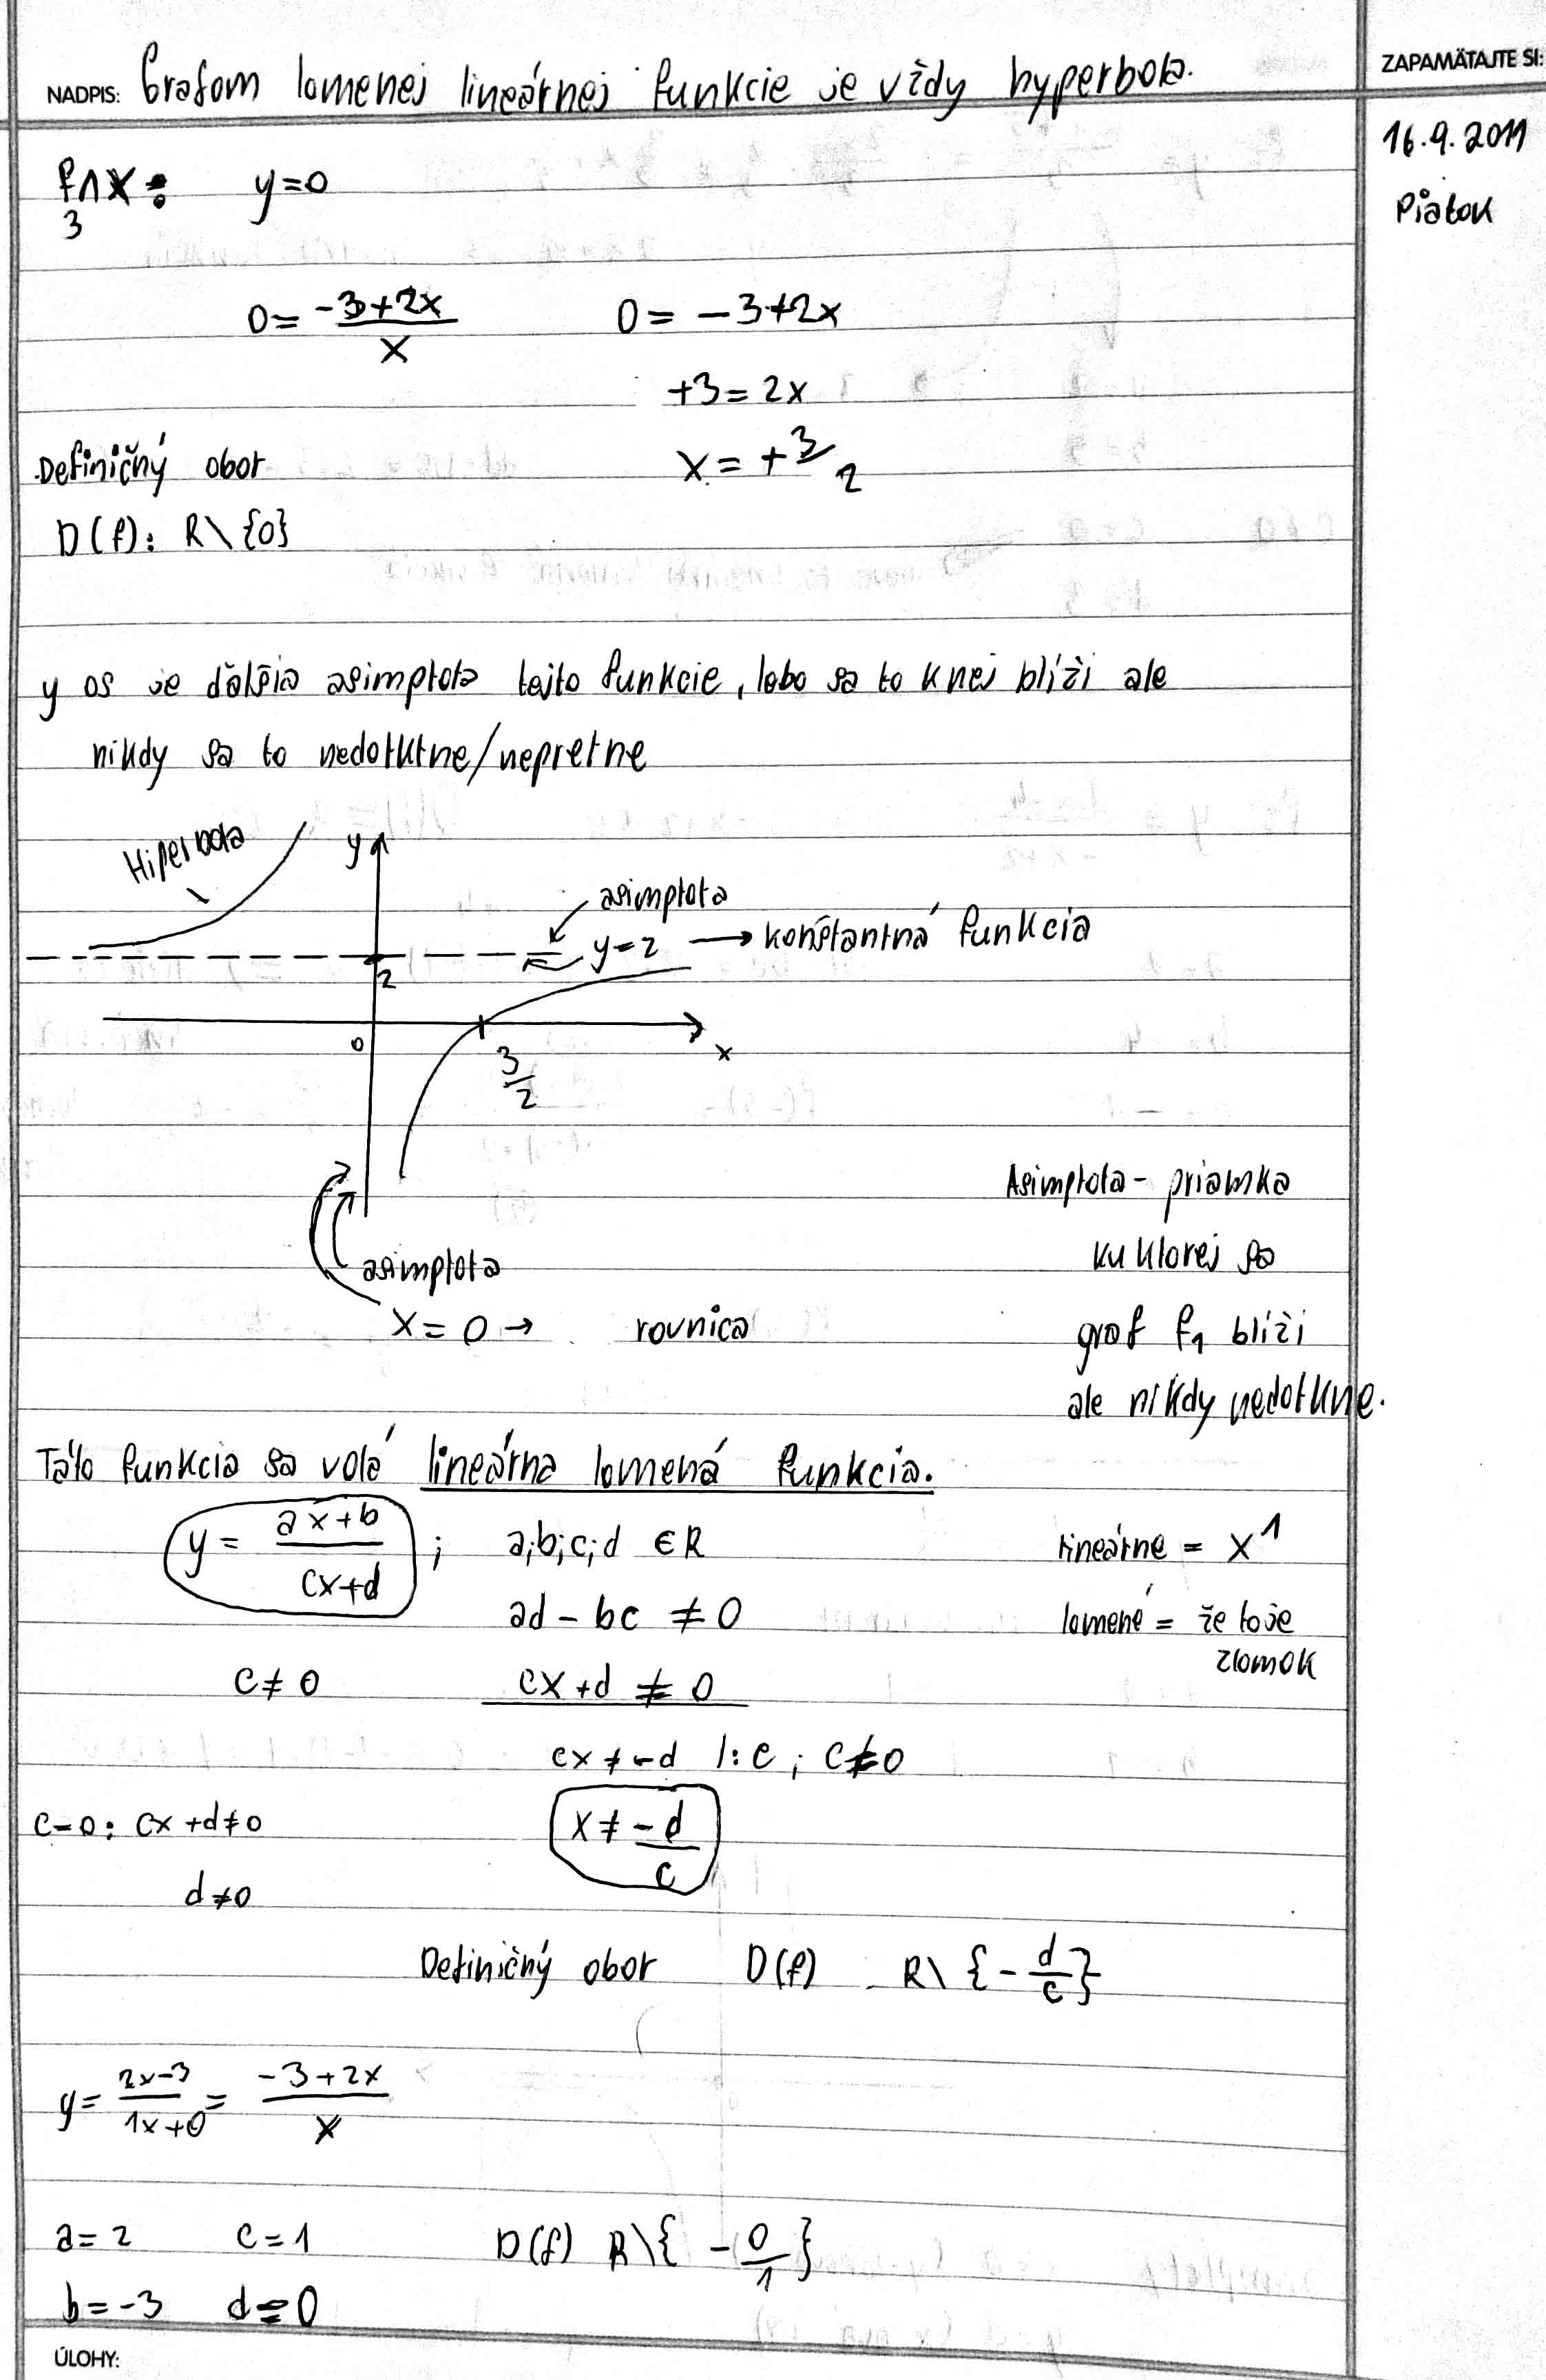 NADPIS: Grafom lomenej lineárnej funkcie je vždy hyperbola.
ZAPAMÄTAJTE SI:
16.9.2011
Piatok
f∩X: y=0
3
0= (-3+2x)/x 0= -3+2x
+3=2x
Definičný obor x=+3/2
D(f): R\{0}
y os je ďalšia asimptota tejto funkcie, lebo sa to k nej blíži ale
nikdy sa to nedotkne/nepretne
Hiperbola
y
asimptota
y=2 → konštantná funkcia
2
0
x
3/2
asimptota
x=0 → rovnica
Asimptota - priamka
ku ktorej sa
graf f₁ blíži
ale nikdy nedotkne.
Táto funkcia sa volá lineárna lomená funkcia.
y= (ax+b)/(cx+d) ; a;b;c;d ∈R lineárne = x¹
ad - bc ≠ 0 lomené = že to je
zlomok
c≠0 cx+d ≠ 0
cx ≠ -d /:c ; c≠0
c=0: cx+d≠0 x ≠ -d/c
d≠0
Definičný obor D(f) R\{-d/c}
y= (2x-3)/(1x+0) = (-3+2x)/x
a=2 c=1 D(f) R\{-0/1}
b=-3 d=0
ÚLOHY: